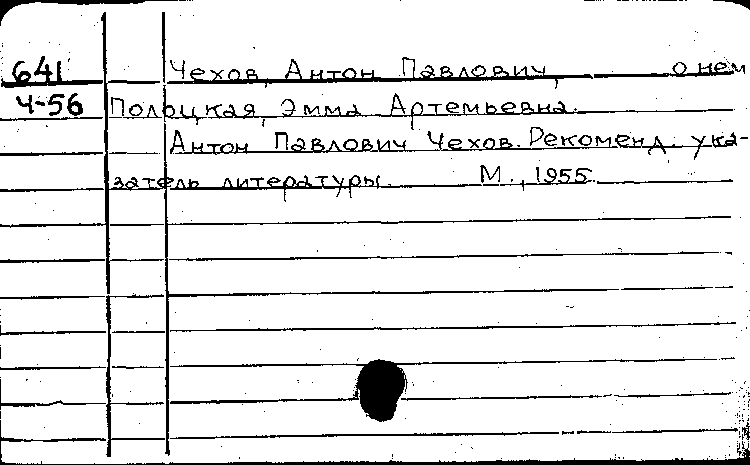 641 Чехов, Антон Павлович, о нем
Ч-56 Полоцкая, Эмма Артемьевна.
Антон Павлович Чехов. Рекоменд. ука-
затель литературы. М., 1955.